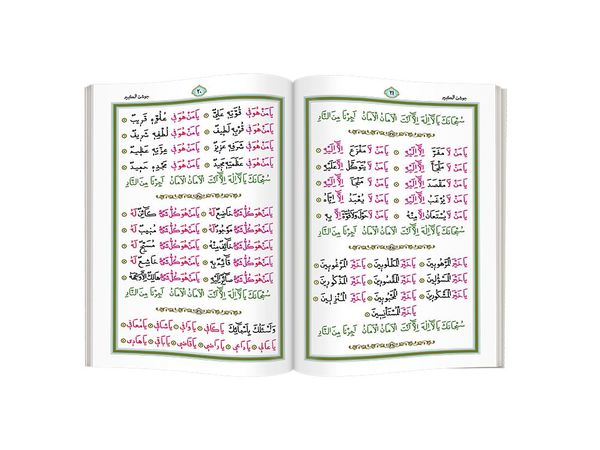 جوشن الكبير
٢١
سُبْحَانَكَ يَا لَا إِلٰهَ إِلَّا أَنْتَ الْأَمَانُ الْأَمَانُ أَجِرْنَا مِنَ النَّارِ
يَا مَنْ لَا مَفَرَّ إِلَّا إِلَيْهِ يَا مَنْ لَا مَفْزَعَ إِلَّا إِلَيْهِ
يَا مَنْ لَا مَلْجَأَ إِلَّا إِلَيْهِ يَا مَنْ لَا يُتَوَكَّلُ إِلَّا عَلَيْهِ
يَا مَنْ لَا مَقْصَدَ إِلَّا إِلَيْهِ يَا مَنْ لَا مَنْجَا إِلَّا إِلَيْهِ
يَا مَنْ لَا يُرْغَبُ إِلَّا إِلَيْهِ يَا مَنْ لَا يُعْبَدُ إِلَّا إِيَّاهُ
يَا مَنْ لَا يُسْتَعَانُ إِلَّا مِنْهُ يَا مَنْ لَا حَوْلَ وَلَا قُوَّةَ إِلَّا بِهِ
سُبْحَانَكَ يَا لَا إِلٰهَ إِلَّا أَنْتَ الْأَمَانُ الْأَمَانُ أَجِرْنَا مِنَ النَّارِ
يَا خَيْرَ الْمَرْهُوبِينَ يَا خَيْرَ الْمَطْلُوبِينَ يَا خَيْرَ الْمَرْغُوبِينَ
يَا خَيْرَ الْمَسْؤُلِينَ يَا خَيْرَ الْمَقْصُودِينَ يَا خَيْرَ الْمَذْكُورِينَ
يَا خَيْرَ الْمَشْكُورِينَ يَا خَيْرَ الْمَحْبُوبِينَ يَا خَيْرَ الْمُنْزِلِينَ
يَا خَيْرَ الْمُسْتَأْنِسِينَ
سُبْحَانَكَ يَا لَا إِلٰهَ إِلَّا أَنْتَ الْأَمَانُ الْأَمَانُ أَجِرْنَا مِنَ النَّارِ
جوشن الكبير
٢٠
يَا مَنْ هُوَ فِي قُوَّتِهِ عَلِيٌّ يَا مَنْ هُوَ فِي عُلُوِّهِ قَرِيبٌ
يَا مَنْ هُوَ فِي قُرْبِهِ لَطِيفٌ يَا مَنْ هُوَ فِي لُطْفِهِ شَرِيفٌ
يَا مَنْ هُوَ فِي شَرَفِهِ عَزِيزٌ يَا مَنْ هُوَ فِي عِزِّهِ عَظِيمٌ
يَا مَنْ هُوَ فِي عَظَمَتِهِ مَجِيدٌ يَا مَنْ هُوَ فِي مَجْدِهِ حَمِيدٌ
سُبْحَانَكَ يَا لَا إِلٰهَ إِلَّا أَنْتَ الْأَمَانُ الْأَمَانُ أَجِرْنَا مِنَ النَّارِ
يَا مَنْ هُوَ كُلُّ شَيْءٍ خَاضِعٌ لَهُ يَا مَنْ هُوَ كُلُّ شَيْءٍ كَائِنٌ لَهُ
يَا مَنْ هُوَ كُلُّ شَيْءٍ مَوْجُودٌ لَهُ يَا مَنْ هُوَ كُلُّ شَيْءٍ مُنِيبٌ لَهُ
يَا مَنْ هُوَ كُلُّ شَيْءٍ خَائِفٌ مِنْهُ يَا مَنْ هُوَ كُلُّ شَيْءٍ مُسَبِّحٌ لَهُ
يَا مَنْ هُوَ كُلُّ شَيْءٍ قَائِمٌ بِهِ يَا مَنْ هُوَ كُلُّ شَيْءٍ خَاشِعٌ لَهُ
يَا مَنْ هُوَ كُلُّ شَيْءٍ صَائِرٌ إِلَيْهِ يَا مَنْ هُوَ كُلُّ شَيْءٍ هَالِكٌ إِلَّا وَجْهَهُ
سُبْحَانَكَ يَا لَا إِلٰهَ إِلَّا أَنْتَ الْأَمَانُ الْأَمَانُ أَجِرْنَا مِنَ النَّارِ
وَأَسْئَلُكَ بِأَسْمَائِكَ يَا كَافِي يَا وَافِي يَا شَافِي يَا مُعَافِي
يَا عَالِي يَا دَاعِي يَا رَاضِي يَا قَاضِي يَا بَاقِي يَا هَادِي